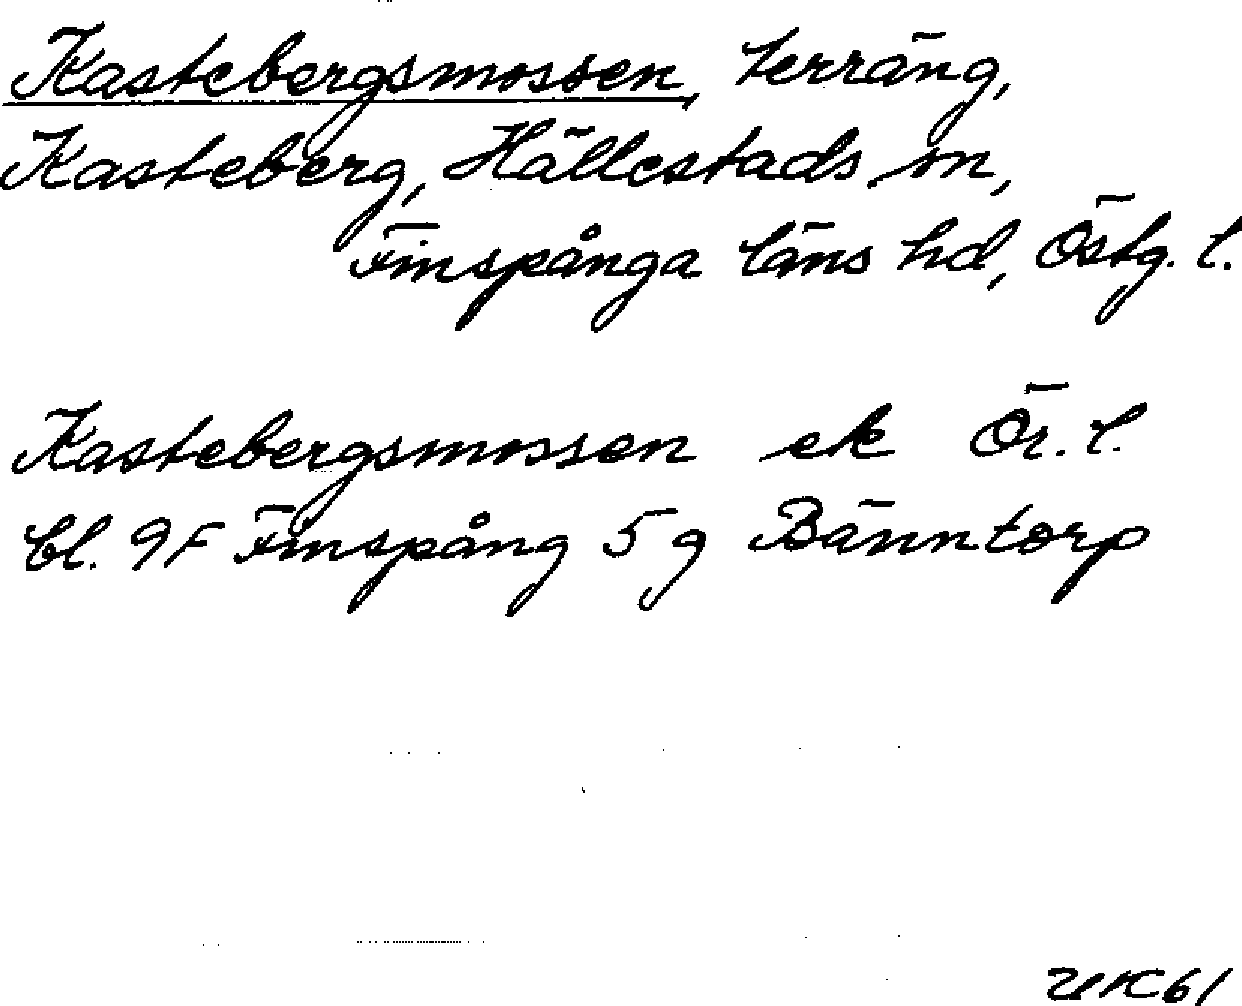 Kastebergsmossen, terräng,
Kasteberg, Hällestads sn,
Finspånga läns hd, Östg. l.
Kastebergsmossen ek Ör. l.
bl. 9F Finspång 5 g Bänntorp